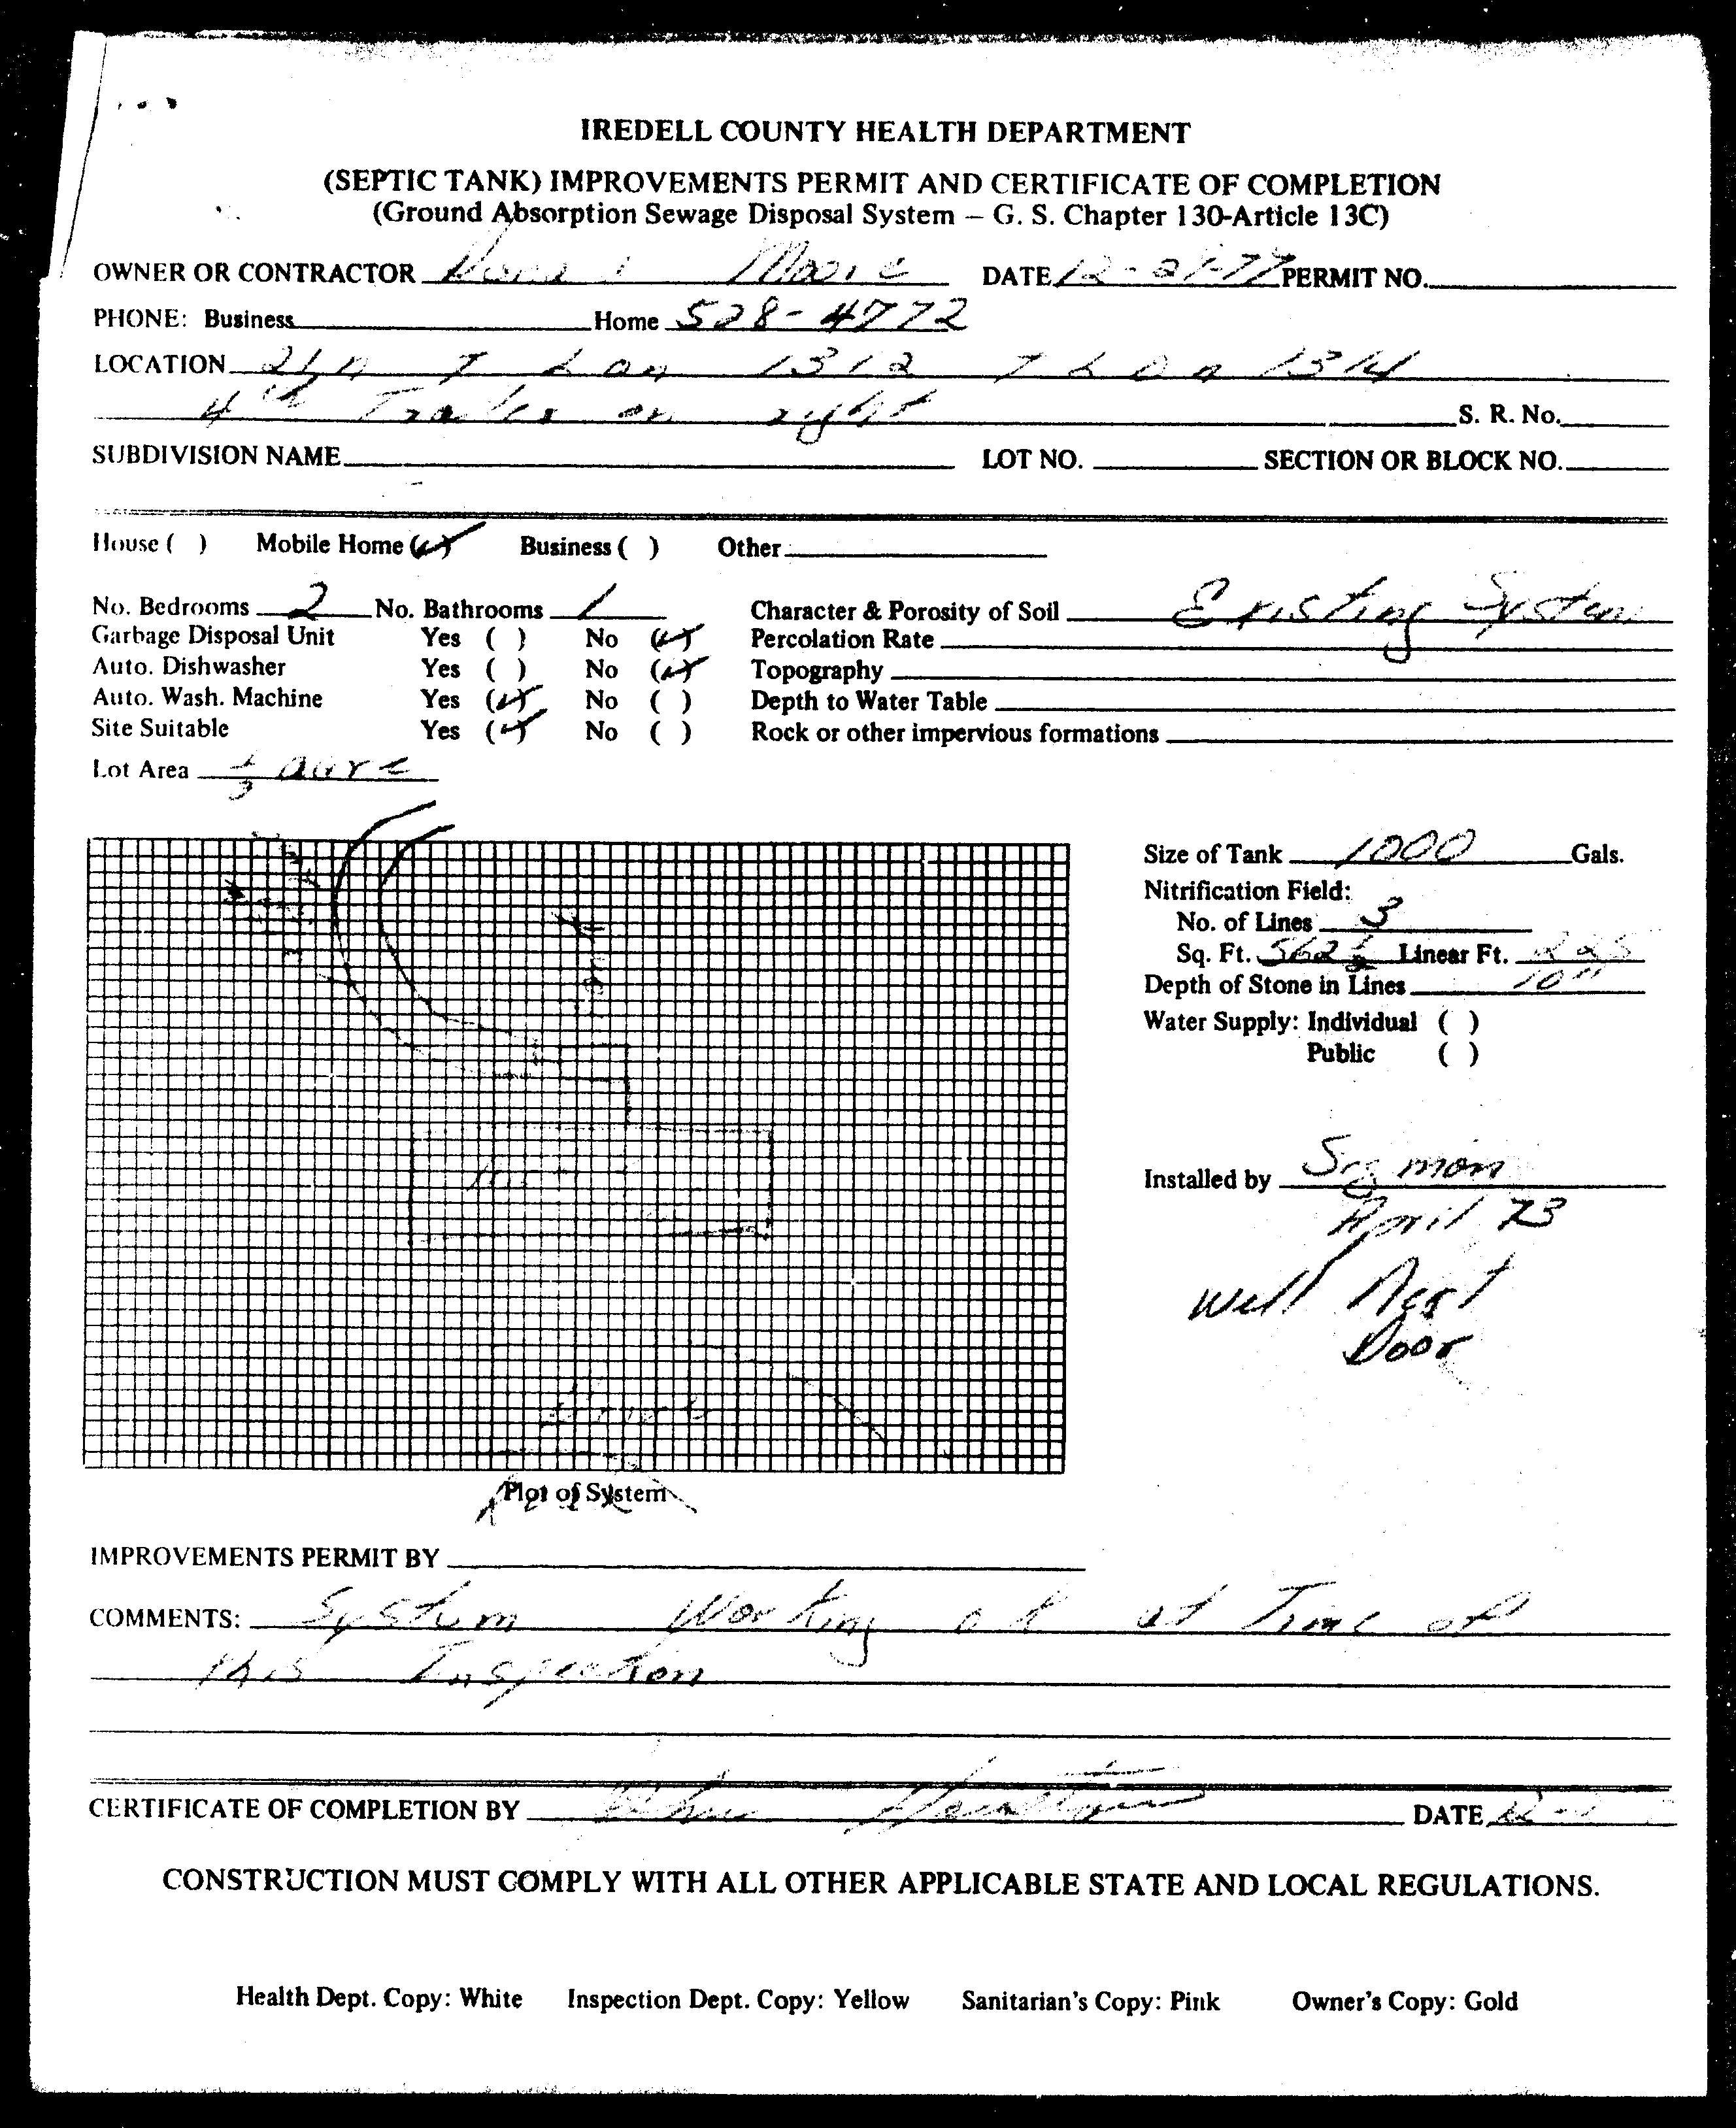 IREDELL COUNTY HEALTH DEPARTMENT
(SEPTIC TANK) IMPROVEMENTS PERMIT AND CERTIFICATE OF COMPLETION
(Ground Absorption Sewage Disposal System – G. S. Chapter 130-Article 13C)
OWNER OR CONTRACTOR DATE PERMIT NO.
PHONE: Business Home 528-4772
LOCATION 21 N T L on 1312 T L on 1314
4th Trailer on right S. R. No.
SUBDIVISION NAME LOT NO. SECTION OR BLOCK NO.
House ( ) Mobile Home (✓) Business ( ) Other
No. Bedrooms 2 No. Bathrooms 1 Character & Porosity of Soil Existing System
Garbage Disposal Unit Yes ( ) No (✓) Percolation Rate
Auto. Dishwasher Yes ( ) No (✓) Topography
Auto. Wash. Machine Yes (✓) No ( ) Depth to Water Table
Site Suitable Yes (✓) No ( ) Rock or other impervious formations
Lot Area 1/3 acre
Size of Tank 1000 Gals.
Nitrification Field:
No. of Lines 3
Sq. Ft. 562 1/2 Linear Ft. 225
Depth of Stone in Lines 10"
Water Supply: Individual ( )
Public ( )
Installed by
April 73
Well Next
Door
Plot of System
IMPROVEMENTS PERMIT BY
COMMENTS: System Working ok at Time of
this Inspection
CERTIFICATE OF COMPLETION BY DATE
CONSTRUCTION MUST COMPLY WITH ALL OTHER APPLICABLE STATE AND LOCAL REGULATIONS.
Health Dept. Copy: White Inspection Dept. Copy: Yellow Sanitarian's Copy: Pink Owner's Copy: Gold